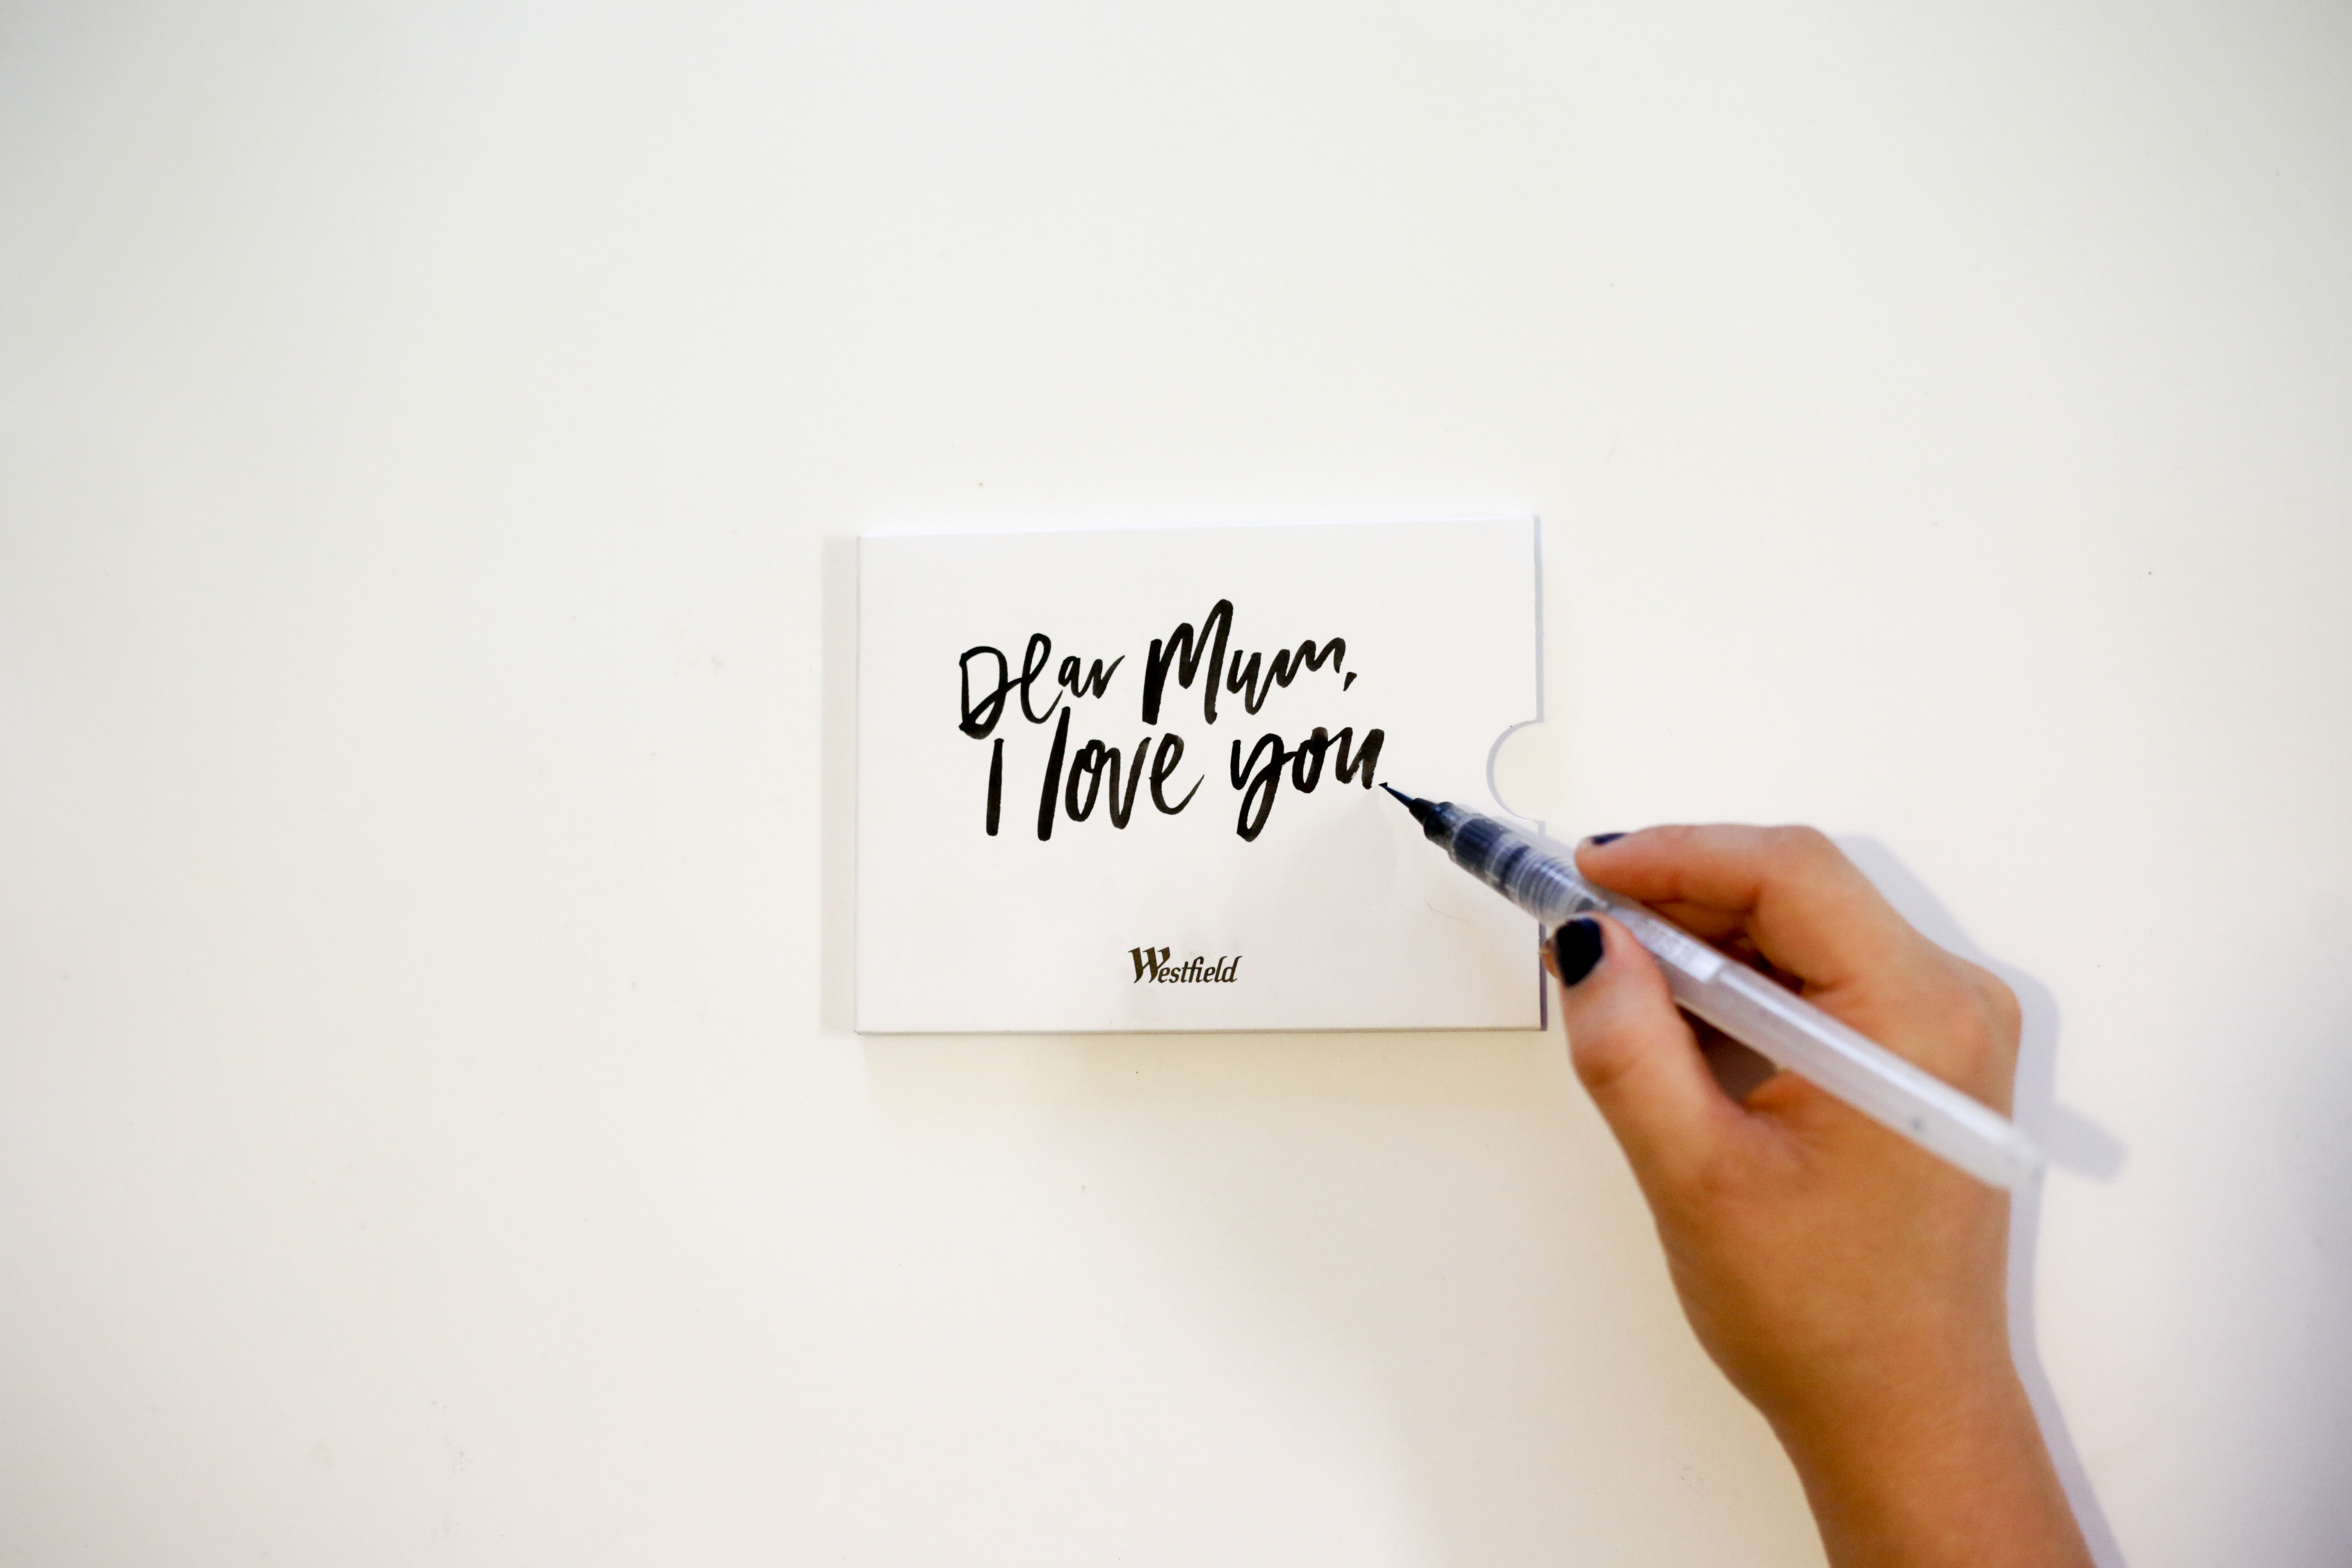 Dear Mum,
I love you
Westfield